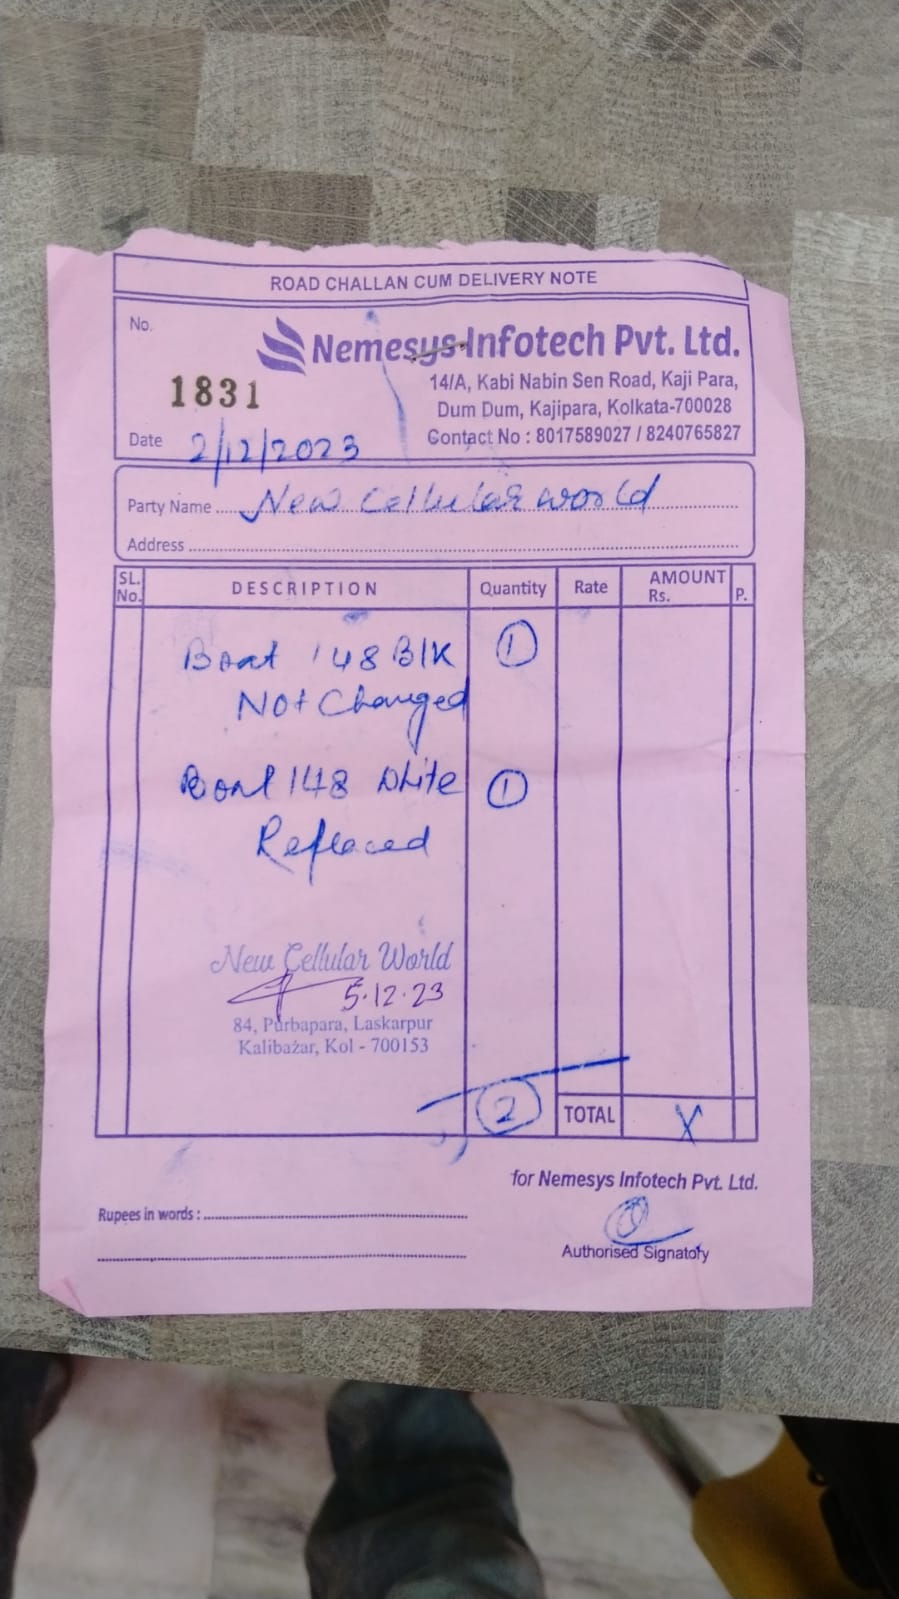 ROAD CHALLAN CUM DELIVERY NOTE
No.
Nemesys Infotech Pvt. Ltd.
1831
14/A, Kabi Nabin Sen Road, Kaji Para,
Dum Dum, Kajipara, Kolkata-700028
Date 2/12/2023
Contact No : 8017589027 / 8240765827
Party Name New Cellular world
Address
SL. No. DESCRIPTION Quantity Rate AMOUNT Rs. P.
Boat 148 Blk 1
Not Changed
Boat 148 White 1
Replaced
New Cellular World
5.12.23
84, Purbapara, Laskarpur
Kalibazar, Kol - 700153
2 TOTAL X
for Nemesys Infotech Pvt. Ltd.
Rupees in words :
Authorised Signatory